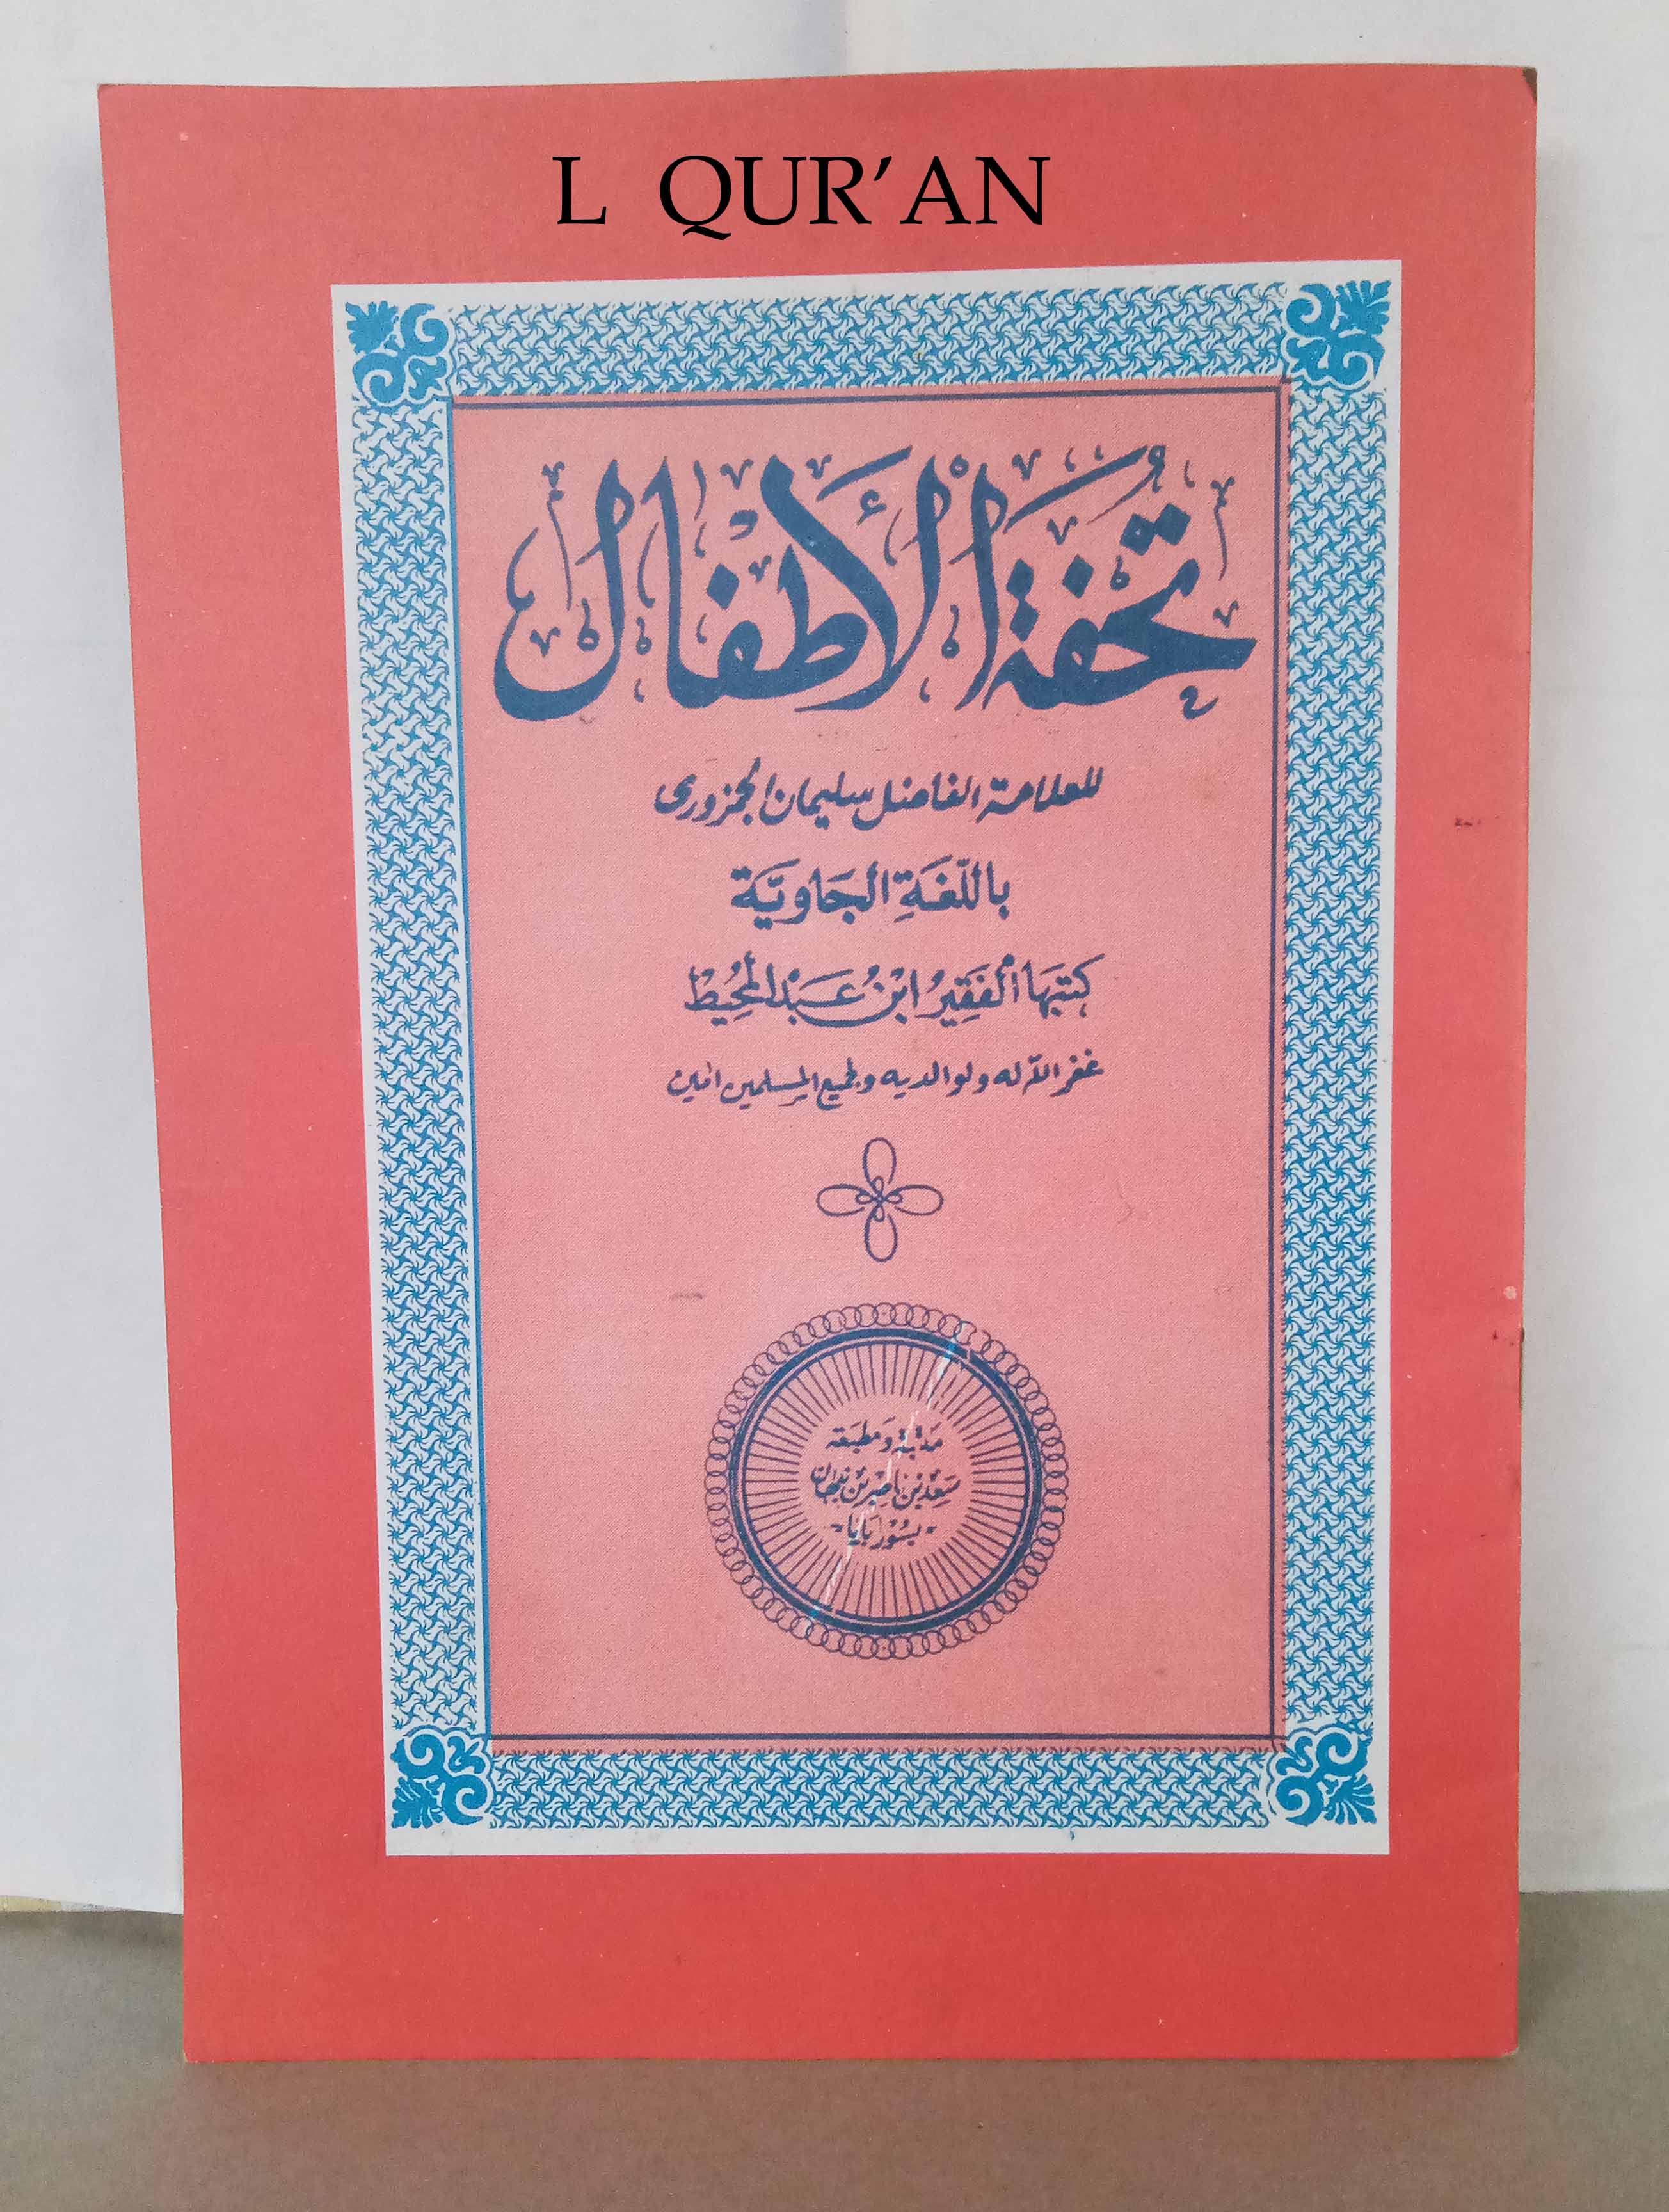 L QUR'AN
تُحْفَةُ الْأَطْفَالِ
للعلامة الفاضل سليمان الجمزورى
باللّغَةِ الجَاوِيَّة
كتبَهَا الْفَقِيرُ ابْنُ عَبْدالمُحِيْط
غفر اللّه له ولوالديه ولجميع المسلمين امين
مكتبة ومطبعة
سَعْد بْن نَاصِر بْن نَبْهَان
- بسُوْرَابَايَا -